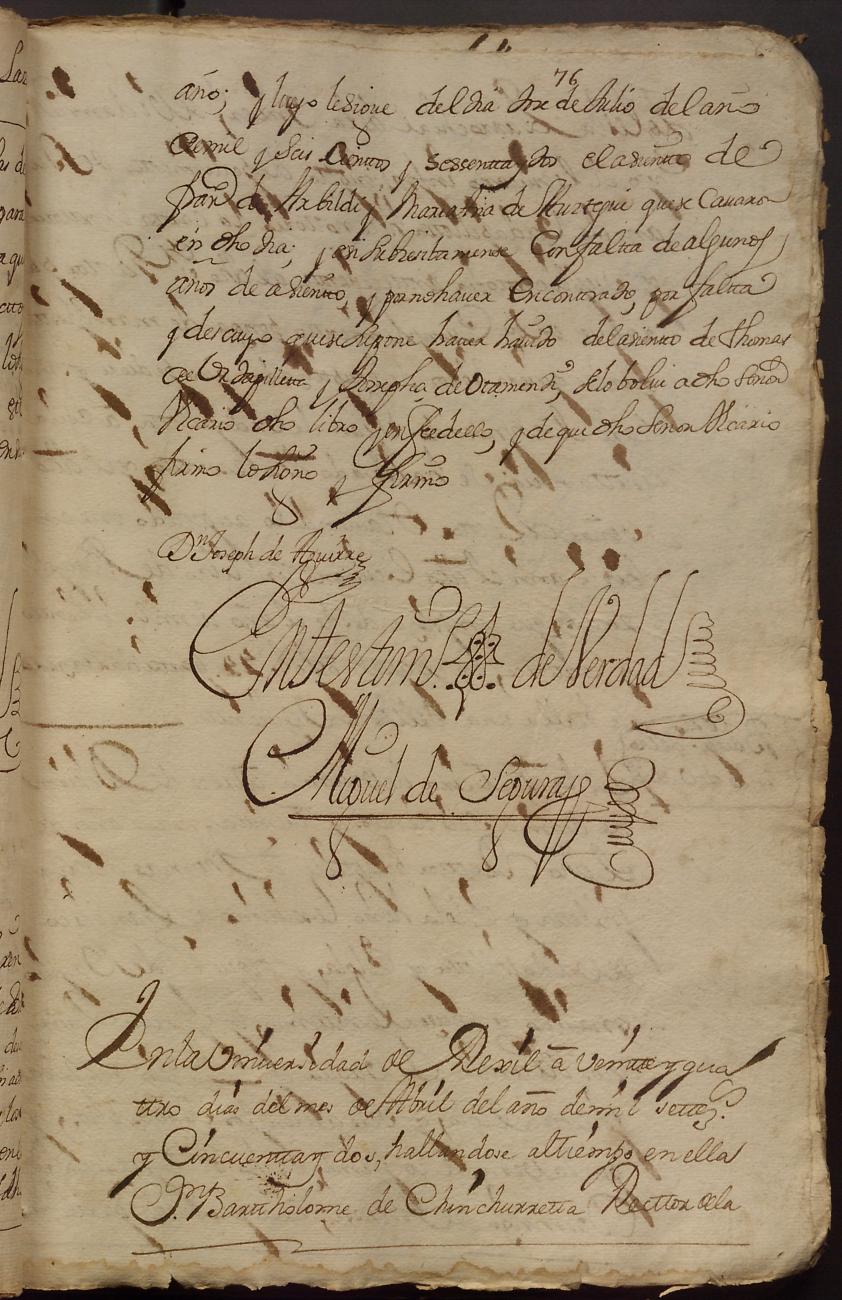 76
año; y luego le sigue del dia trx de Julio del año
de mil y Seis Cientos y sessenta y dos el asiento de
Franco de Arbildi y Maria fra de Yturtegui que se Casaron
en dho dia; y en subresibamense Con falta de algunos
años de asiento, y por no haver encontrado, por falta
y descuyo que se supone haver havido del asiento de Thomas
de Urdapilleta y Josepha de Otamendi, se lo bolui a dho Señor
Vicario dho libro y en fee dello, y de que dho Señor Vicario
firmo lo signo y firmo
Dn Joseph de Aguirre
En testimo de Verdad
Miguel de Segura
En la Universidad de Rexil â veinte y qua
ttro dias del mes de Abril del año de mil settezs
y Cincuenta y dos, hallandose al tiempo en ella
Dn Barttholome de Chinchurretta Recttor de la